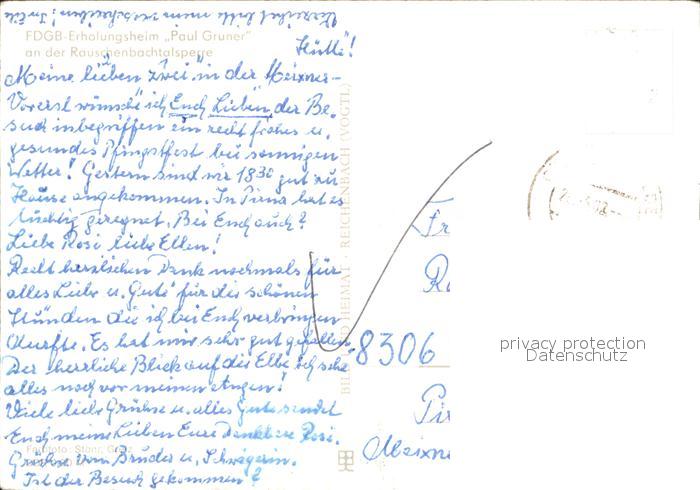 Verzeihet bitte mein verschreiben!
FDGB-Erholungsheim „Paul Gruner"
an der Rauschenbachtalsperre
Hütte!
Meine lieben zwei in der Meixner-
Vorerst wünsche ich Euch Lieben, der Be-
such inbegriffen ein recht frohes u.
gesundes Pfingstfest bei sonnigen
Wetter! Gestern sind wir 18³⁰ gut zu
Hause angekommen. In Pirna hat es
tüchtig geregnet. Bei Euch auch?
Liebe Rosi liebe Ellen!
Recht herzlichen Dank nochmals für
alles Liebe u. Gute für die schönen
Stunden die ich bei Euch verbringen
durfte. Es hat mir sehr gut gefallen.
Der herrliche Blick auf die Elbe ich sehe
alles noch vor meinen Augen!
Viele liebe Grüße u. alles Gute sendet
Euch meine Lieben Eure Dankbare Rosi.
Grüße vom Bruder u. Schwägerin.
Ist der Besuch gekommen?
BILD UND HEIMAT · REICHENBACH (VOGTL)
Fr
8306
Pir
Meixne
privacy protection
Datenschutz